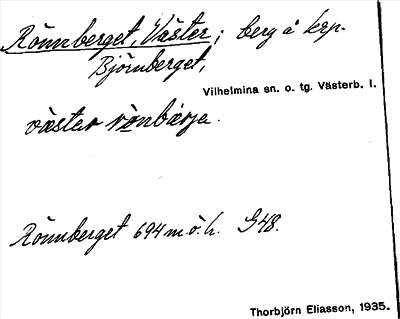 Rönnberget, Väster; berg å krp.
Björnberget,
Vilhelmina sn. o. tg. Västerb. l.
väster rönbärje.
Rönnberget 694 m.ö.h. S48.
Thorbjörn Eliasson, 1935.